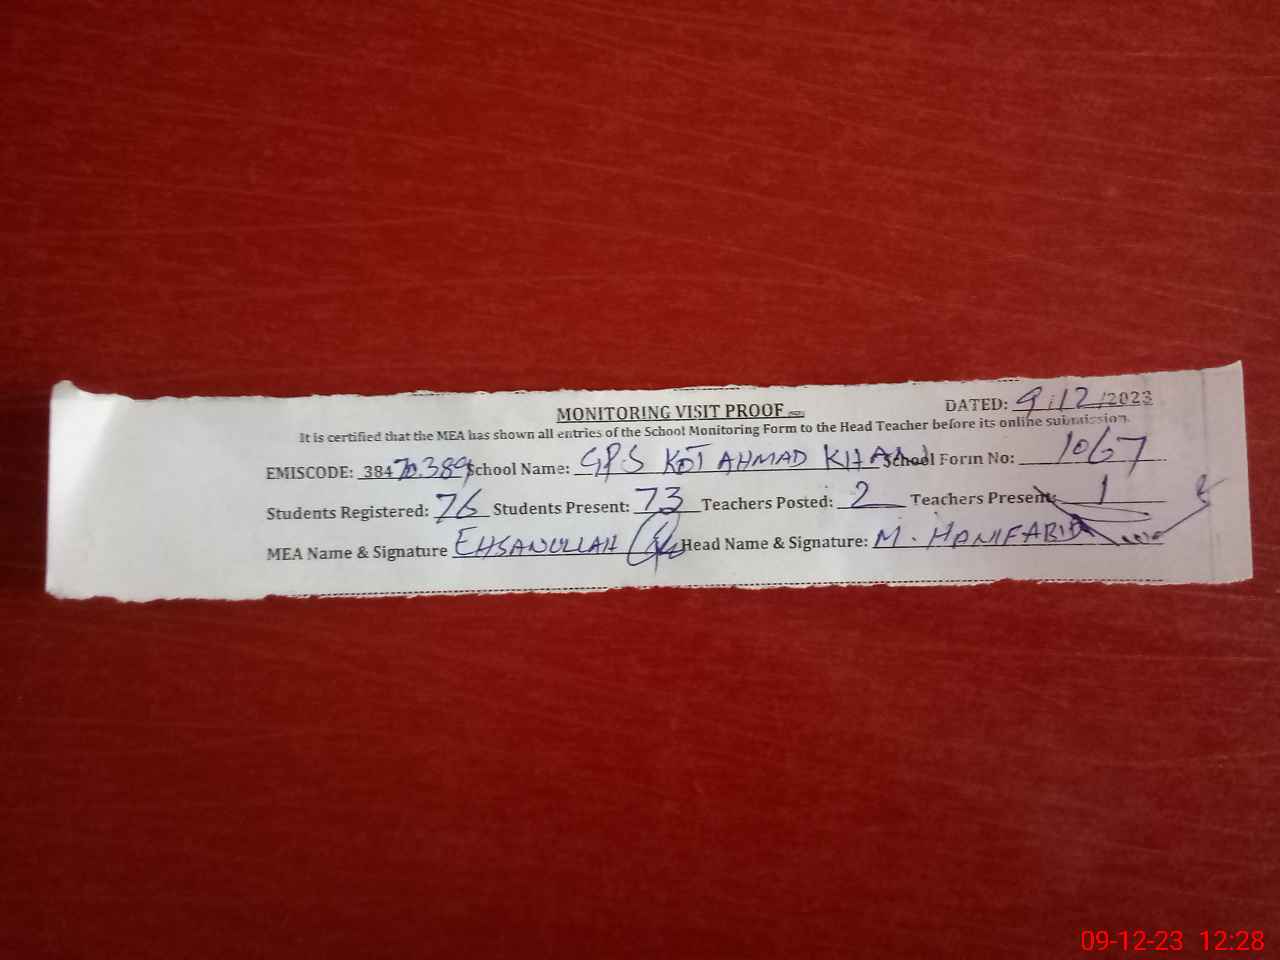 MONITORING VISIT PROOF
DATED: 9/12/2023
It is certified that the MEA has shown all entries of the School Monitoring Form to the Head Teacher before its online submission.
EMISCODE: 38470389 School Name: GPS KOT AHMAD KHAN School Form No: 1067
Students Registered: 76 Students Present: 73 Teachers Posted: 2 Teachers Present: 1
MEA Name & Signature EHSANULLAH Head Name & Signature: M. HANIF ABID
09-12-23 12:28